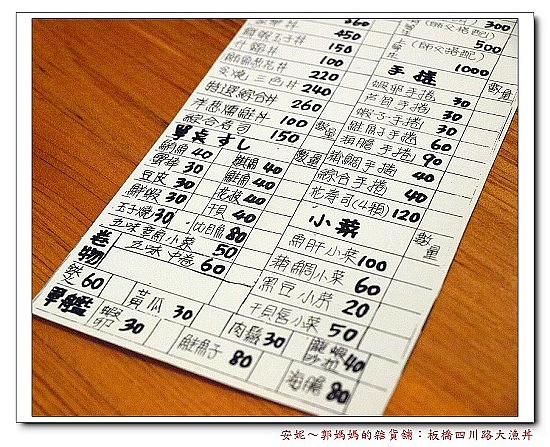 360
鮭蝦玉子丼 450
什錦丼 150
鮪魚蔥花丼 100
炙燒三色丼 220
特選綜合丼 240
洋蔥燻鮭丼 260
綜合壽司 100
150
單点すし 數量
鯛魚 40
30
豆皮 30
鮮蝦 30
玉子燒 30
鮭魚 40
花枝 40
干貝 40
比目魚 80
五味章魚小菜 50
五味中卷 60
卷物
60
軍艦
蝦卵 30
黃瓜 30
鮭魚子 80
肉鬆 30
龍蝦沙拉 40
海膽 80
300
(師父搭配) 500
1000
手捲 數量
蝦卵手捲 30
蘆筍手捲 30
蝦子手捲 30
鮭魚子手捲 60
海膽手捲 90
鮪鯛手捲 40
綜合手捲 40
花壽司(4種) 120
小菜 數量
魚肝小菜 100
鮪鯛小菜 60
黑豆小菜 20
干貝唇小菜 50
安妮～郭媽媽的雜貨舖：板橋四川路大漁丼